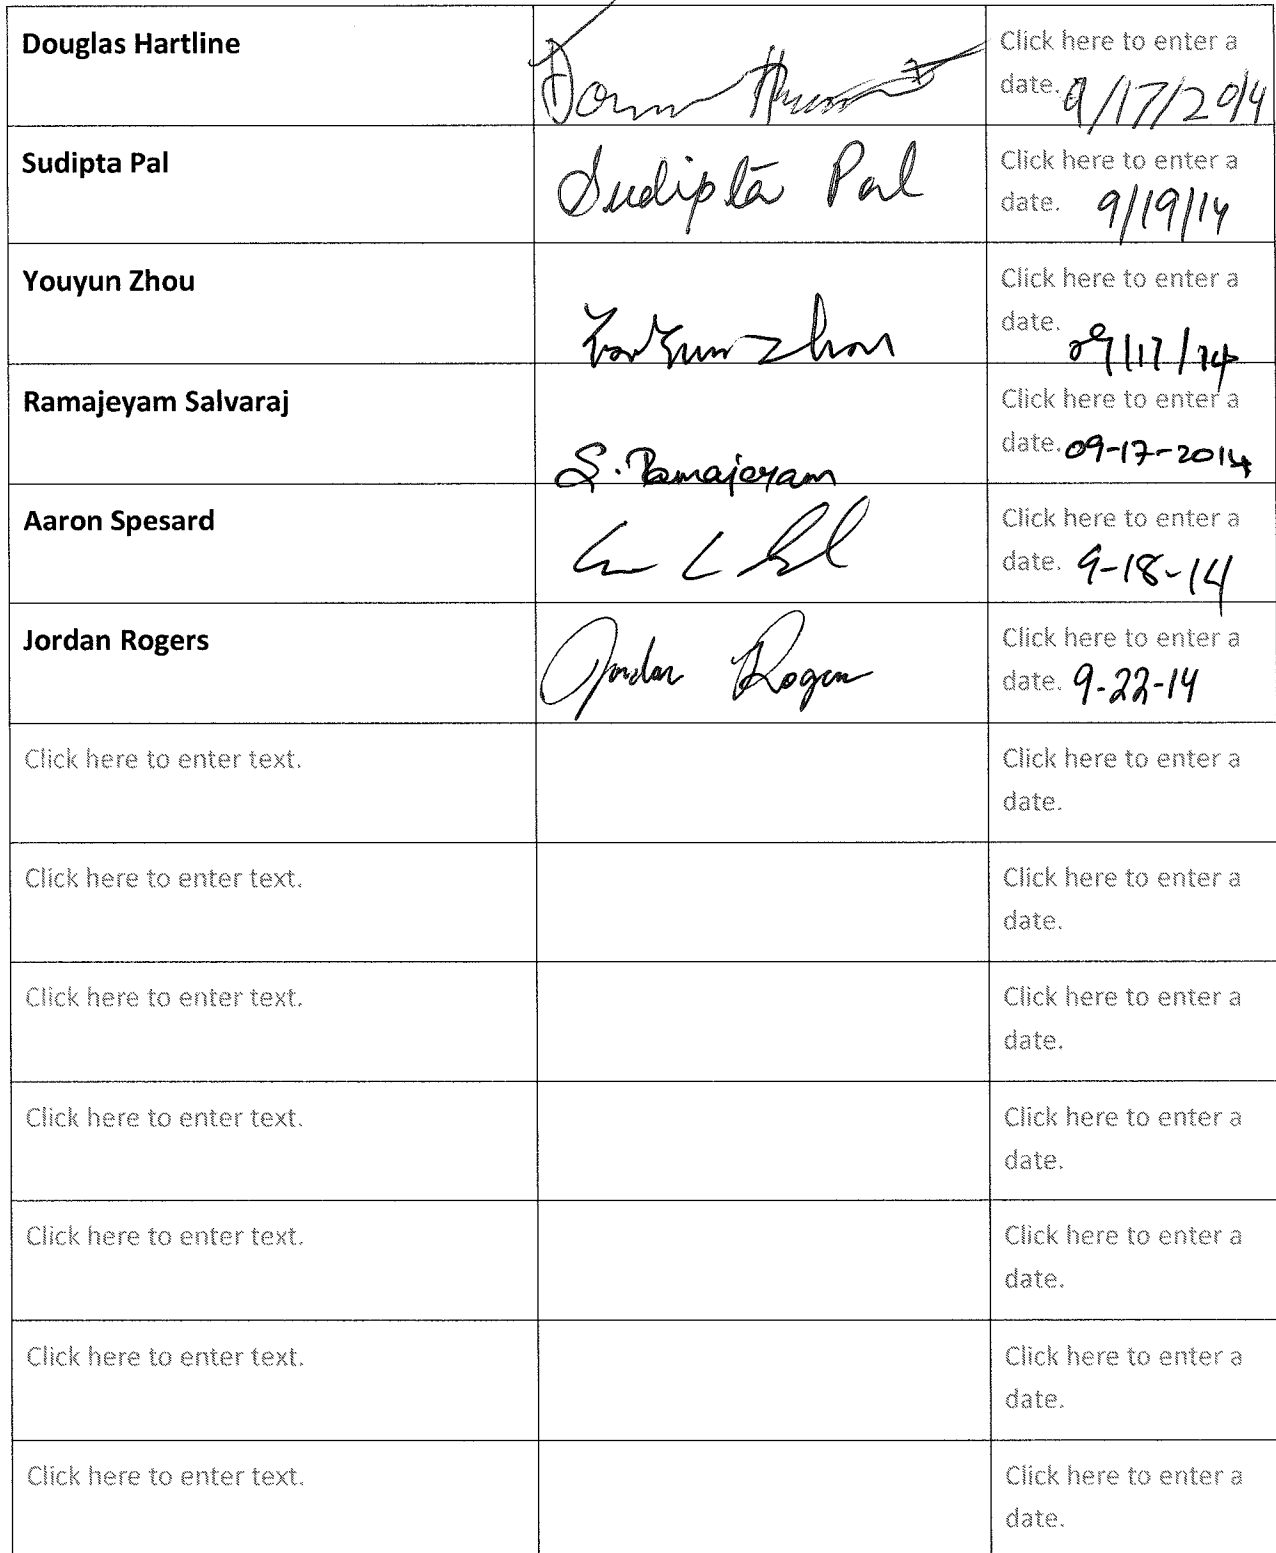 Douglas Hartline
Click here to enter a
date. 9/17/2014
Sudipta Pal
Sudipta Pal
Click here to enter a
date. 9/19/14
Youyun Zhou
Youyun Zhou
Click here to enter a
date. 09/17/14
Ramajeyam Salvaraj
S. Ramajeyam
Click here to enter a
date. 09-17-2014
Aaron Spesard
Click here to enter a
date. 9-18-14
Jordan Rogers
Jordan Rogers
Click here to enter a
date. 9-22-14
Click here to enter text.
Click here to enter a
date.
Click here to enter text.
Click here to enter a
date.
Click here to enter text.
Click here to enter a
date.
Click here to enter text.
Click here to enter a
date.
Click here to enter text.
Click here to enter a
date.
Click here to enter text.
Click here to enter a
date.
Click here to enter text.
Click here to enter a
date.